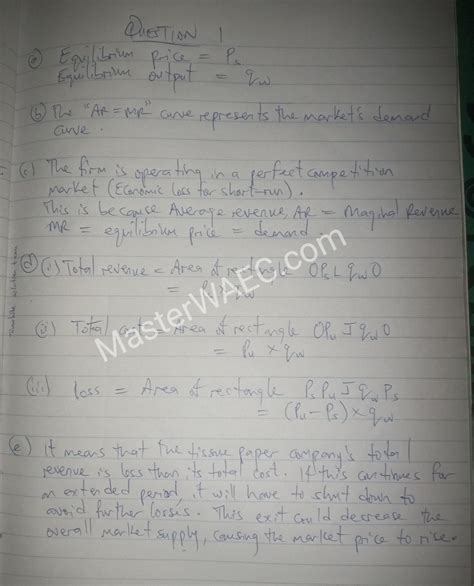 QUESTION 1
(a) Equilibrium price = Ps
Equilibrium output = qw
(b) The "AR = MR" curve represents the market's demand
curve.
(c) The firm is operating in a perfect competition
market (Economic loss for short-run).
This is because Average revenue, AR = Maginal Revenue
MR = equilibrium price = demand.
(d) (i) Total revenue = Area of rectangle OPsLqwO
= Ps x qw
(ii) Total cost = Area of rectangle OPuJqwO
= Pu x qw
(iii) loss = Area of rectangle PsPuJqwPs
= (Pu - Ps) x qw
(e) It means that the tissue paper company's total
revenue is less than its total cost. If this continues for
an extended period, it will have to shut down to
avoid further lossis. This exit could decrease the
overall market supply, causing the market price to rise.
MasterWAEC.com